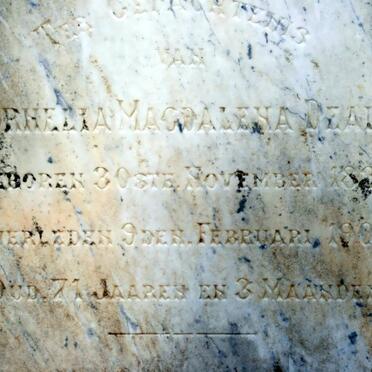 TER GEDACHTENIS
VAN
RNELIA MAGDALENA DEAL
BOREN 30STE NOVEMBER 18
VERLEDEN 9DEN. FEBRUARI 190
OUD 71 JAAREN EN 3 MAANDEN